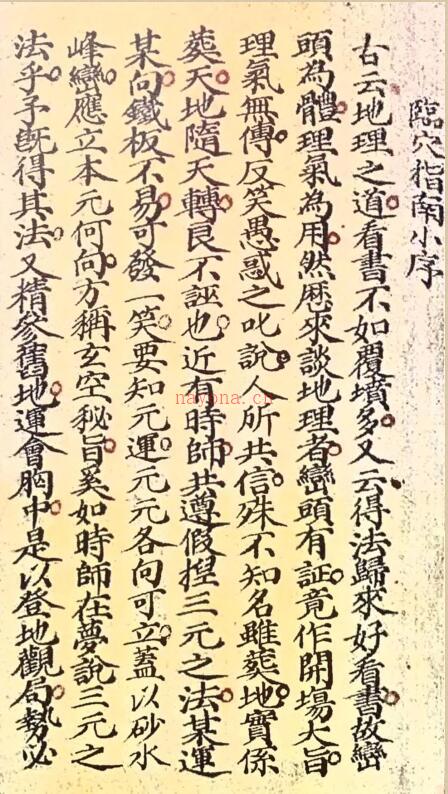 臨穴指南小序
古云地理之道看書不如覆墳多又云得法歸來好看書故巒
頭為體理氣為用然歷來談地理者巒頭有証竟作開場大旨
理氣無傳反笑愚惑之叱說人所共信殊不知名雖葬地實係
葬天地隨天轉良不誣也近有時師共遵假捏三元之法某運
某向鐵板不易可發一笑要知元運元元各向可立蓋以砂水
峰巒應立本元何向方稱玄空秘旨奚如時師在夢說三元之
法乎予既得其法又精參舊地運會胸中是以登地觀局勢必
nayona.cn